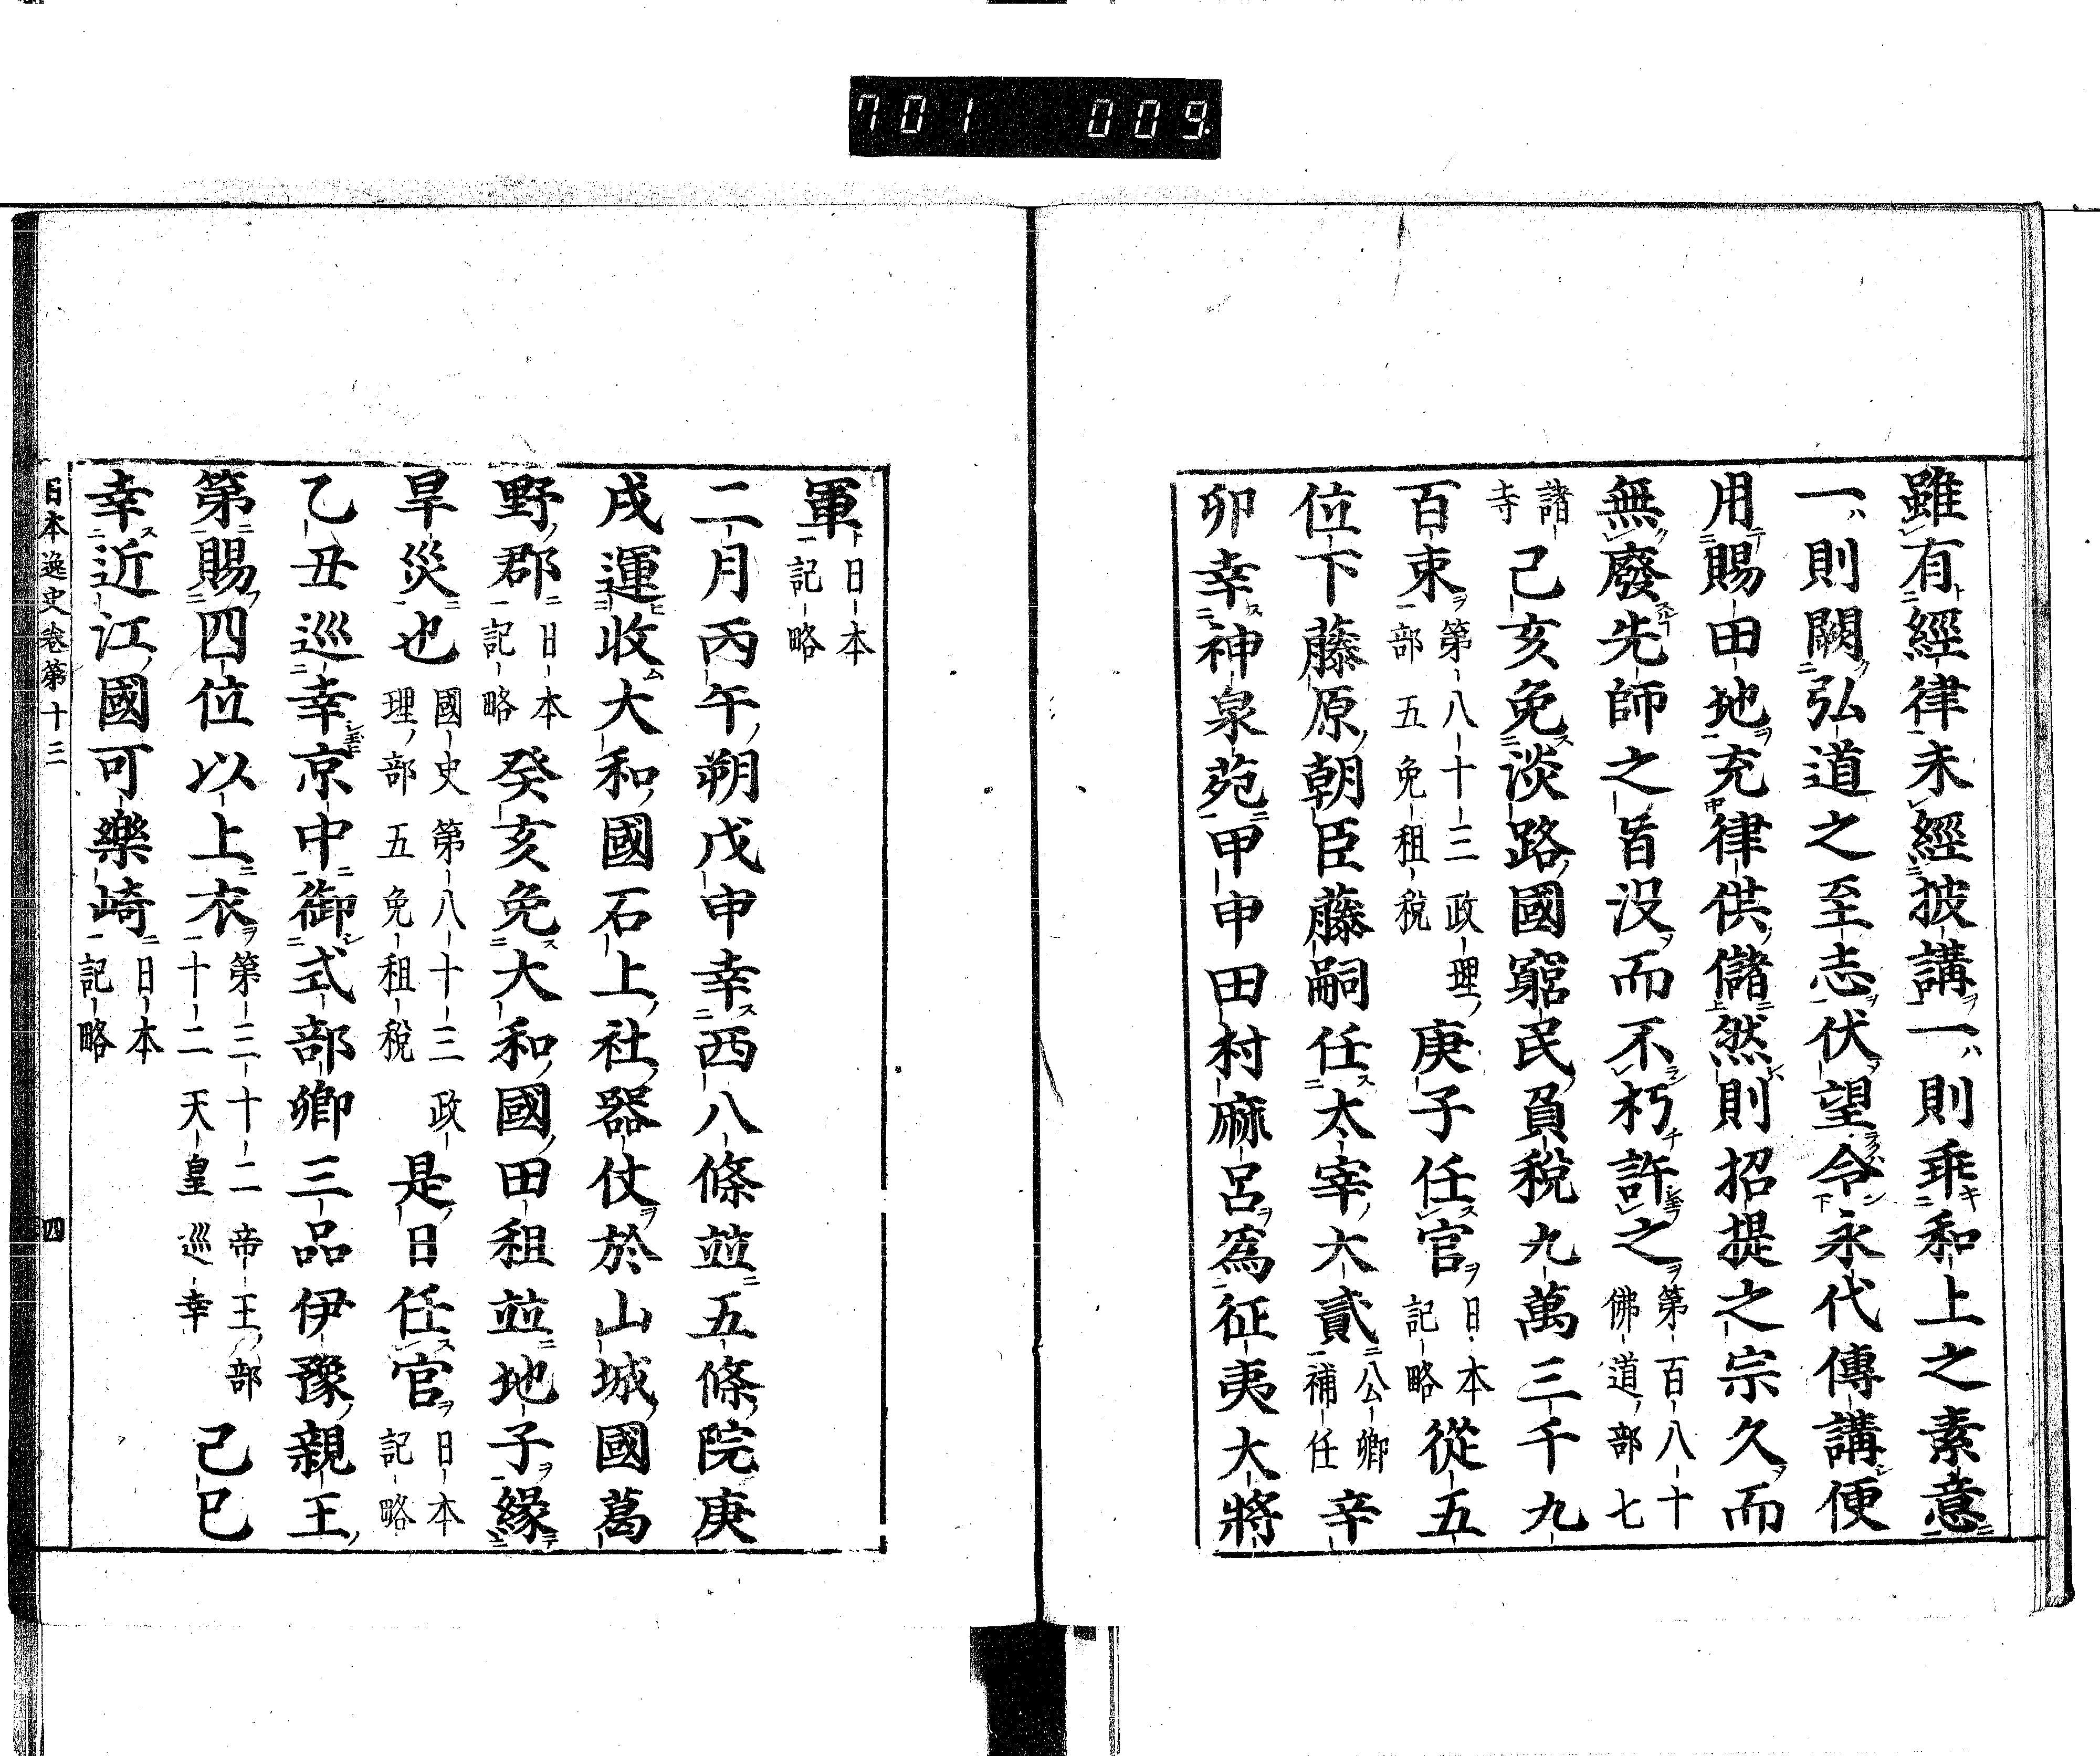 701 009.
雖有經律未經披講一則乖和上之素意
一則闕弘道之至志伏望令永代傳講便
用賜田地充律供儲然則招提之宗久而
無廢先師之旨没而不朽許之第百八十佛道部七
諸寺己亥免淡路國窮民負稅九萬三千九
百束第八十三政理部五免租稅庚子任官日本記略從五
位下藤原朝臣藤嗣任太宰大貳公卿補任辛
卯幸神泉苑甲申田村麻呂爲征夷大將
軍日本記略
二月丙午朔戊申幸西八條竝五條院庚
戌運收大和國石上社器仗於山城國葛
野郡日本記略癸亥免大和國田租竝地子緣
旱災也國史第八十三政理部五免租稅是日任官日本記略
乙丑巡幸京中御式部卿三品伊豫親王
第賜四位以上衣第三十二帝王部十二天皇巡幸己巳
幸近江國可樂崎日本記略
日本逸史卷第十三 四